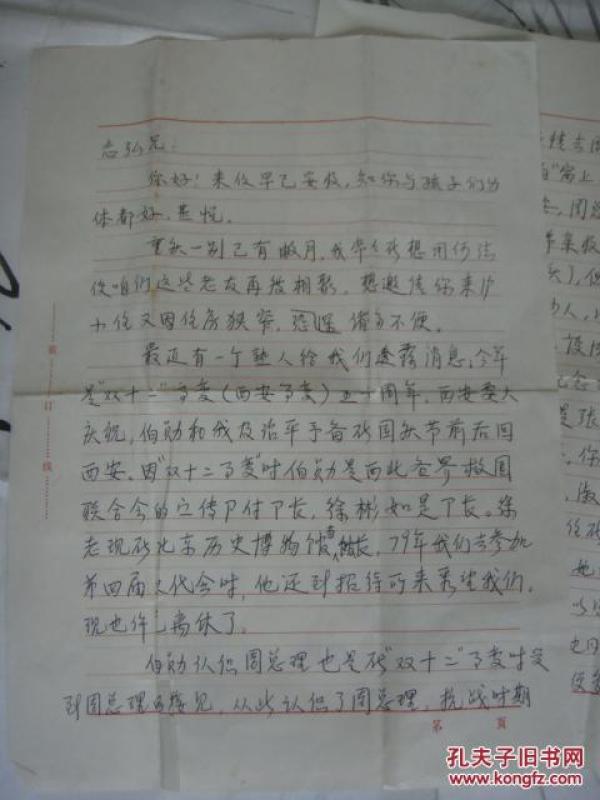 志弘兄:
你好!来信早已妥收,知你与孩子们身
体都好,甚悦。
重庆一别已有数月,我华在我想用何法
使咱们这些老友再能相聚,想邀请你来
小住又因住房狭窄,恐深诸多不便。
最近有一个熟人给我们透露消息,今年
是"双十二"事变(西安事变)五十周年,西安要大
庆祝,伯勋和我及治平予备在国庆节前后回
西安。因"双十二事变"时伯勋是西北各界救国
联合会的宣传部付部长,徐彬如是部长。徐
老现在北京历史博物馆 馆长,79年我们去参加
第四届文代会时,他还到招待所来看望我们,
现也许已离休了。
伯勋认识周总理也是在"双十二"事变时受
到周总理的接见,从此认识了周总理,抗战时期
第 页
装
订
线
孔夫子旧书网
www.kongfz.com